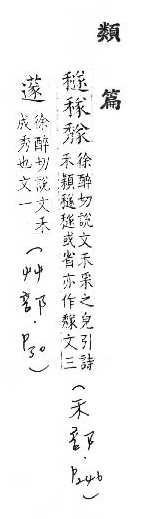 類篇
穟
徐醉切說文禾采之皃引詩
禾穎穟穟或省亦作文三
(禾部·P246)
徐醉切說文禾
成秀也文一
(艸部·P30)